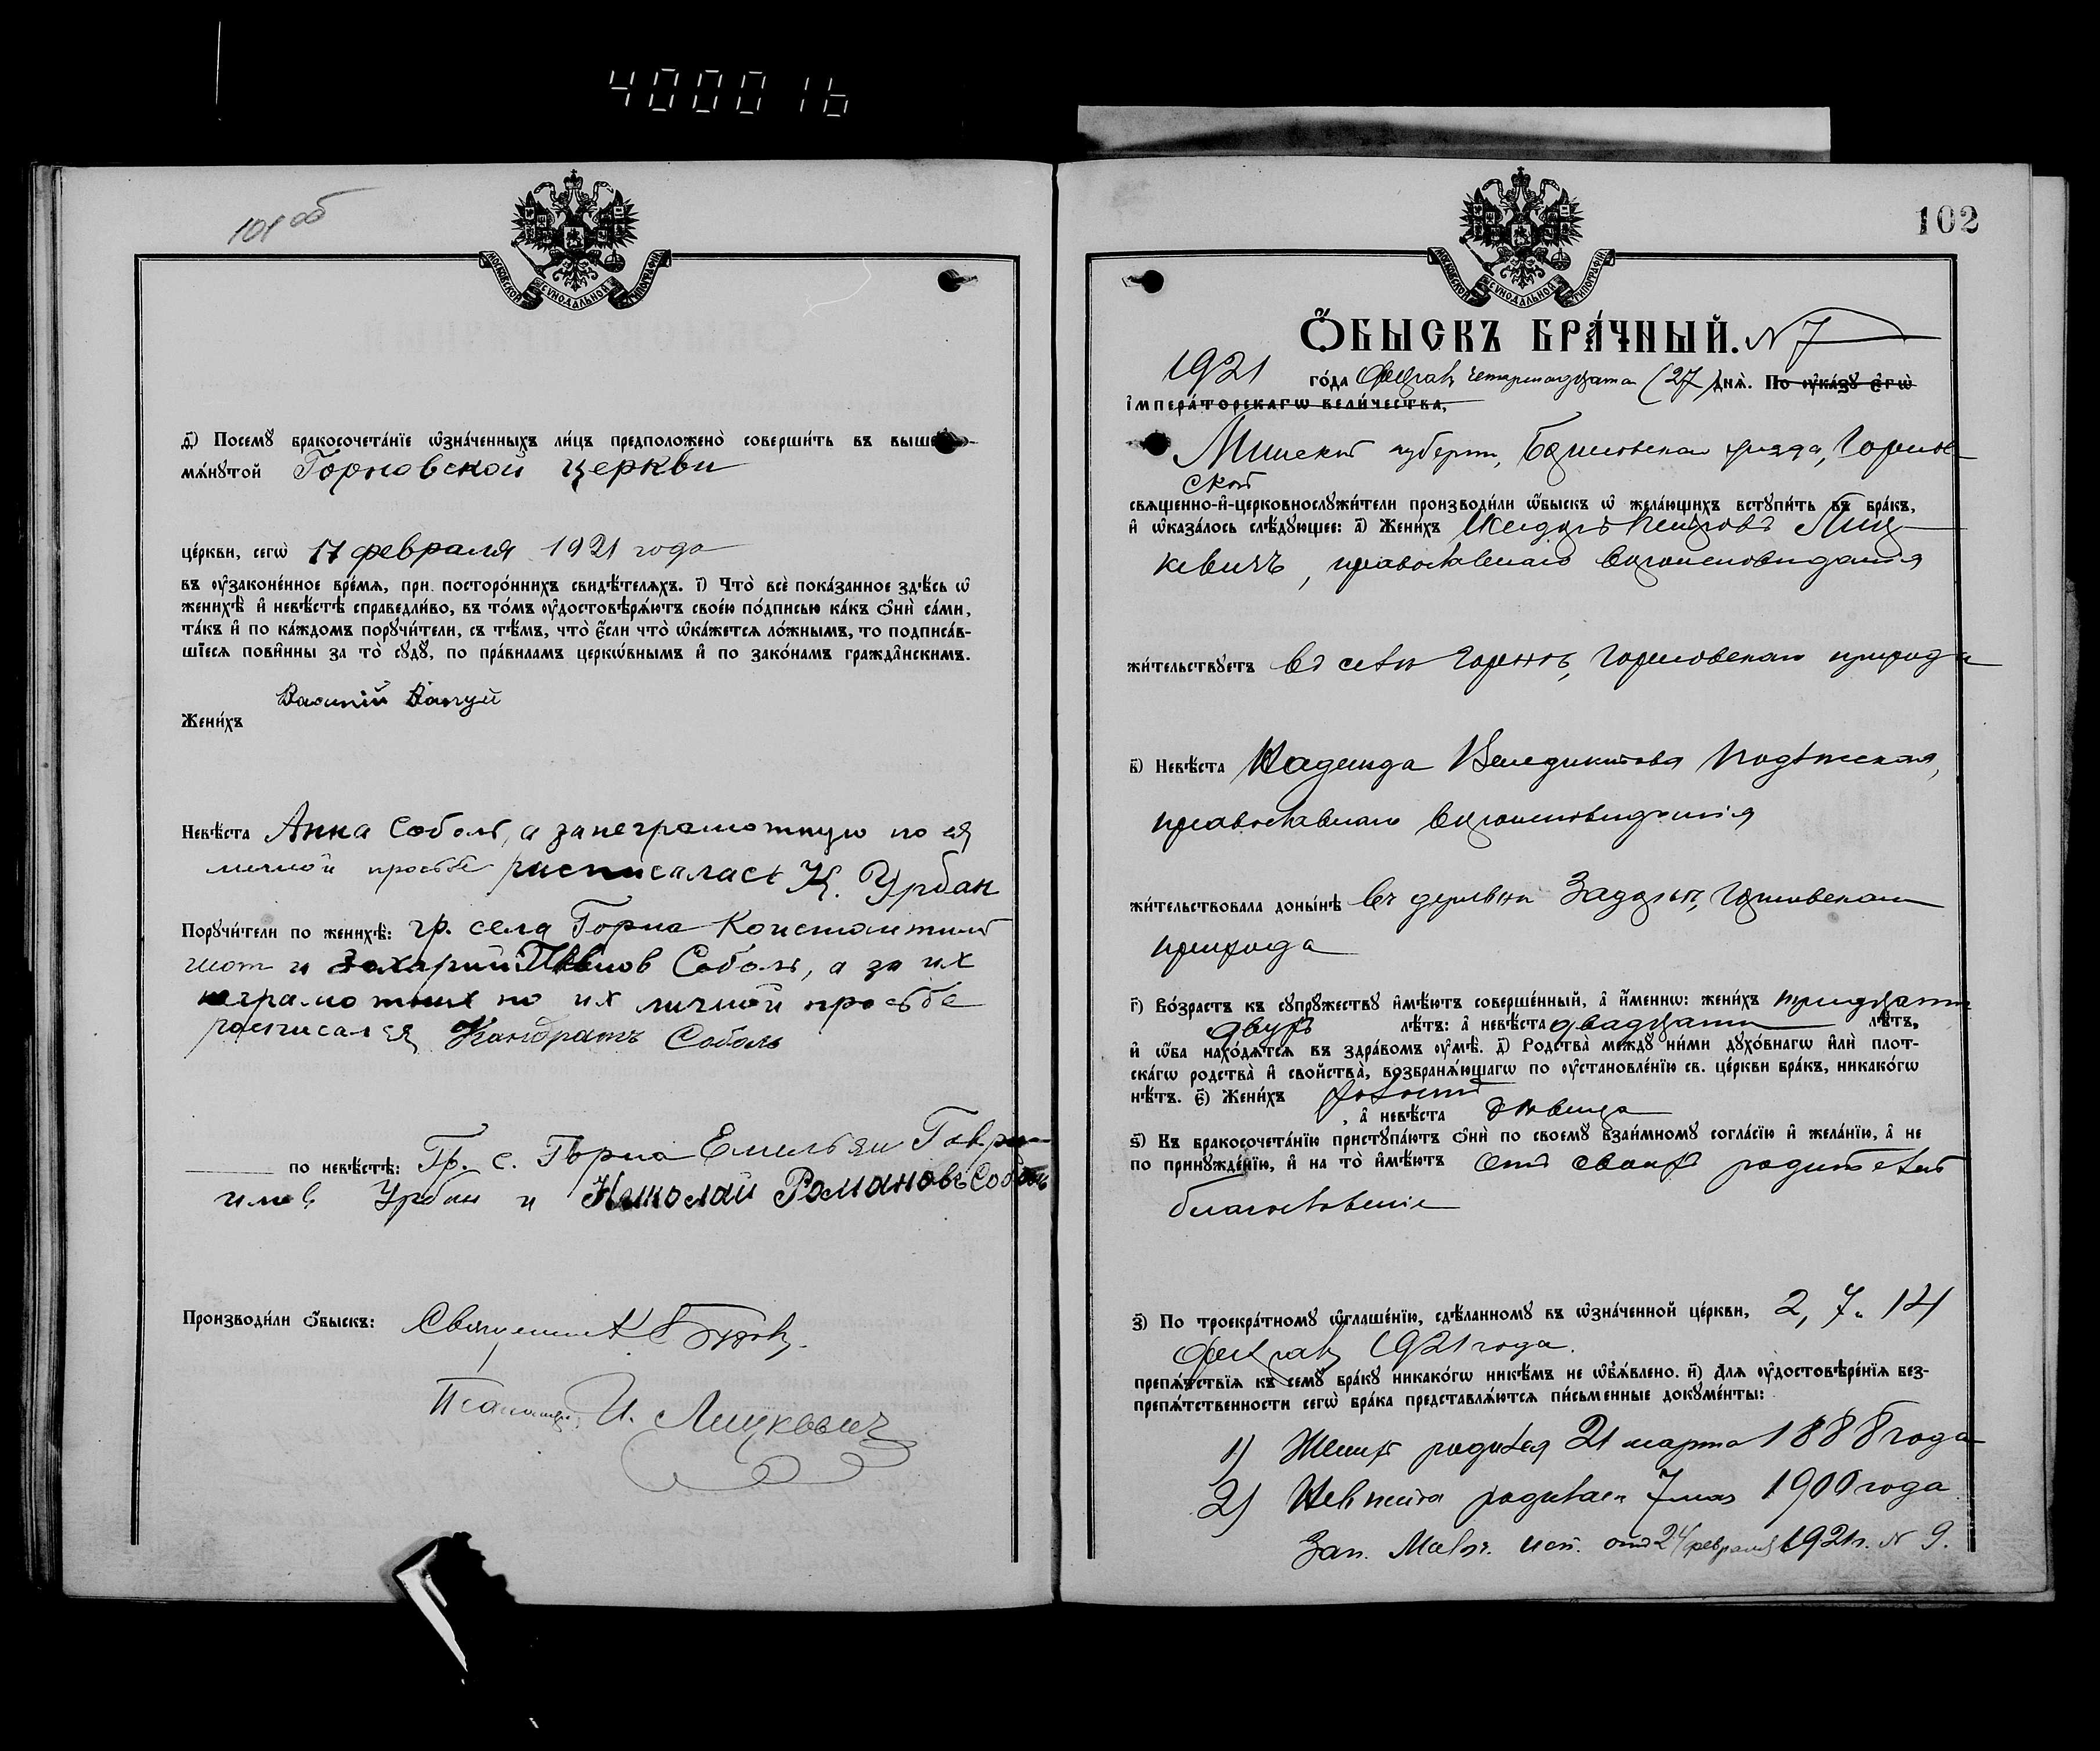 4000016
101 об
МОСКОВСКОЙ СУНОДАЛЬНОЙ ТИПОГРАФІИ
ѳ҃) Посемꙋ̀ бракосочета́нїе ѡ҆зна́ченныхъ ли́цъ предположенѡ̀ соверши́ть въ выше
мѧ́нꙋтой Горновской церкви
це́ркви, сегѡ̀ 17 февраля 1921 года
въ ᲂу҆зако́ненное вре́мѧ, при посторо́ннихъ свидѣ́телѧхъ. і҃) Что̀ всѐ пока́занное здѣ́сь ѡ҆
женихѣ̀ и҆ невѣ́стѣ справедли́во, въ то́мъ ᲂу҆достовѣрѧ́ютъ свое́ю по́дписью ка́къ ѻ҆нѝ са́ми,
та́къ и҆ по ка́ждомъ порꙋчи́тели, съ тѣ́мъ, что̀ є҆́сли что̀ ѡ҆ка́жетсѧ ло́жнымъ, то подписа́в-
шїесѧ пови́нны за то̀ сꙋдꙋ̀, по пра́виламъ церкѡ́внымъ и҆ по зако́намъ гражда́нскимъ.
Василій Вапуй
Жени́хъ
Невѣ́ста Анна Соболь, а за неграмотную по ея
личной просьбе расписалась К. Урбан
Порꙋчи́тели по женихѣ̀: гр. села Горна Константин
и Захарий Соболь, а за их
неграмотных по их личной просьбе
расписался Кандратъ Соболь
по невѣ́стѣ: Гр. с. Горна Емельян Гаври
илов Урбан и Николай Романовъ Соболь
Производи́ли ѻ҆́быскъ: Священник
Псаломщ. И. Лицкевич
102
МОСКОВСКОЙ СУНОДАЛЬНОЙ ТИПОГРАФІИ
Ѻ҆́БЫСКЪ БРА́ЧНЫЙ. N 7
1921 го́да Феврал четырнадцата (27) днѧ̀. По ᲂу҆ка́зꙋ є҆гѡ̀
і҆мпера́торскагѡ вели́чества,
Минской губерн, Борисовскаго уезда, Горнов
ской
свѧщенно-и҆-церковнослꙋжи́тели производи́ли ѡ҆́быскъ ѡ҆ жела́ющихъ встꙋпи́ть въ бра́къ,
и҆ ѡ҆каза́лось слѣ́дꙋющее: а҃) Жени́хъ Петровъ Лиц
кевичъ, православнаго вероисповидания
жи́тельствꙋетъ въ селе Горно, Горновскаго прихода
в҃) Невѣ́ста Надежда Венедиктова
православнаго вероисповидания
жи́тельствовала доны́нѣ въ деревни Горновскаго
прихода
г҃) Во́зрастъ къ сꙋпрꙋ́жествꙋ и҆мѣ́ютъ соверше́нный, а҆ и҆́меннѡ: жени́хъ тридцати
двухъ лѣ́тъ: а҆ невѣ́ста двадцати лѣ́тъ,
и҆ ѡ҆́ба нахо́дѧтсѧ въ здра́вомъ ᲂу҆мѣ̀. д҃) Родства̀ междꙋ ни́ми дꙋхо́внагѡ и҆лѝ плот-
ска́гѡ родства̀ и҆ сво́йства̀, возбранѧ́ющагѡ по ᲂу҆становле́нїю св. це́ркви бра́къ, никако́гѡ
нѣ́тъ. є҃) Жени́хъ холост
, а҆ невѣ́ста девица
ѕ҃) Къ бракосочета́нїю пристꙋпа́ютъ ѻ҆нѝ по своемꙋ̀ взаи́мномꙋ согла́сїю и҆ жела́нїю, а҆ не
по принꙋжде́нїю, и҆ на то̀ и҆мѣ́ютъ отъ своихъ родителей
благословение
з҃) По троекра́тномꙋ ѡ҆глаше́нїю, сдѣ́ланномꙋ въ ѡ҆зна́ченной це́ркви, 2, 7, 14
Феврал 1921 года.
препѧ́тствїѧ къ семꙋ̀ бра́кꙋ никако́гѡ никѣ́мъ не ѡ҆б̾ѧ́влено. и҃) Длѧ ᲂу҆достовѣре́нїѧ без-
препѧ́тственности сегѡ̀ бра́ка представлѧ́ютсѧ пи́сьменные докꙋме́нты:
1) Жених родился 21 марта 1888 года
2) Невеста родилась 7 мая 1900 года
Зап. от 24 февраля 1921 г. N 9.